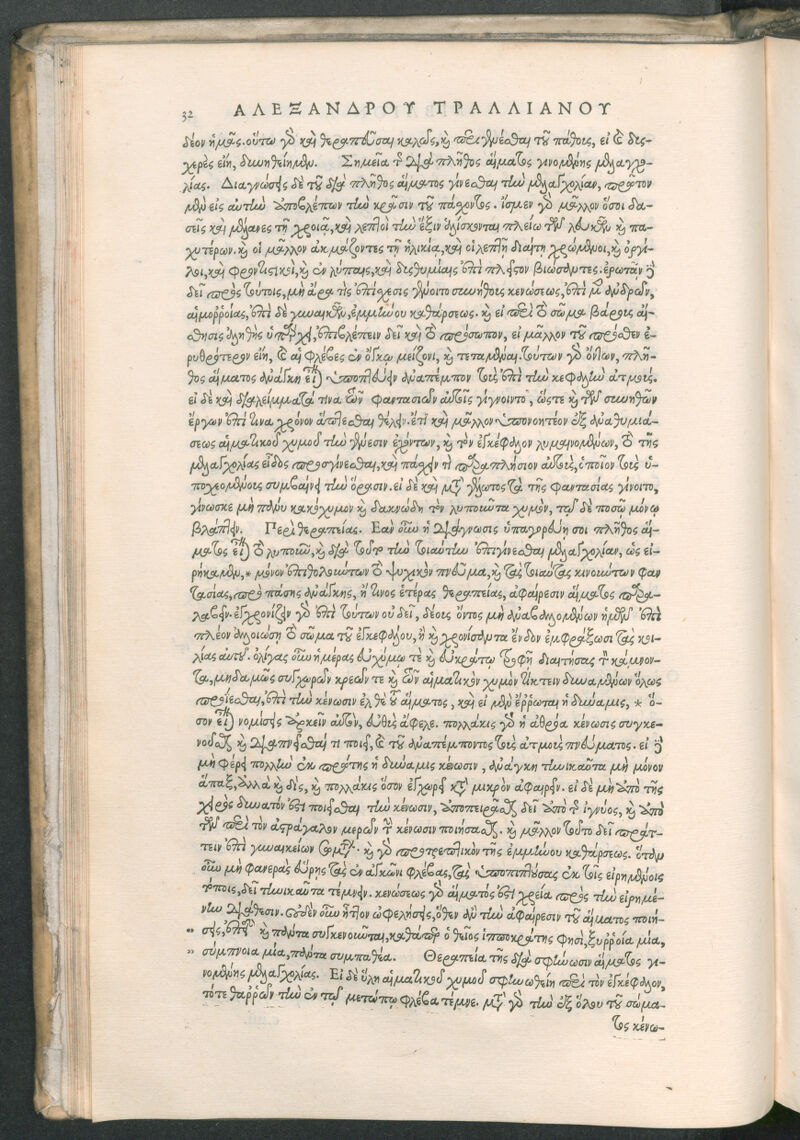 32 ΑΛΕΞΑΝΔΡΟΥ ΤΡΑΛΛΙΑΝΟΥ
δέον ἡμᾶς. οὕτω γὸ καὶ θεραπεῦσαι καλῶς, καὶ περιγενέσθαι τοῦ πάθους, εἰ καὶ δυσ-
χερὲς εἴη, δυνηθείημεν. Σημεῖα τῆς διὰ πλῆθος αἵματος γινομένης μελαγχο-
λίας. Διαγνώσῃς δὲ τοῦ διὰ πλῆθος αἵματος γίνεσθαι τὴν μελαγχολίαν, πρῶτον
μὲν εἰς αὐτὴν ἀποβλέπων τὴν κρᾶσιν τοῦ πάσχοντος. ἴσμεν γὰρ μᾶλλον ὅσοι δα-
σεῖς καὶ μέλανες τῇ χροιᾷ, καὶ λεπτοὶ τὴν ἕξιν ἁλίσκονται πλείω τῶν λευκῶν καὶ πα-
χυτέρων. καὶ οἱ μᾶλλον ἀκμάζοντες τῇ ἡλικίᾳ, καὶ οἱ λεπτῇ διαίτῃ χρώμενοι, καὶ ὀργί-
λοι, καὶ φροντιστικοὶ, καὶ ἐν λύπαις, καὶ δυσθυμίαις ἐπὶ πλεῖστον βιώσαντες. ἐρωτᾶν δὲ
δεῖ πρὸς τούτοις, μὴ ἄρα τις ἐπίσχεσις γένοιτο συνήθους κενώσεως, ἐπὶ μὲν ἀνδρῶν,
αἱμορροίας, ἐπὶ δὲ γυναικῶν, ἐμμήνου καθάρσεως. καὶ εἰ περὶ τὸ σῶμα βάρους αἴ-
σθησις ἀληθὴς ὑπάρχει, ἐπιβλέπειν δεῖ καὶ τὸ πρόσωπον, εἰ μᾶλλον τοῦ πρόσθεν ἐ-
ρυθρότερον εἴη, καὶ αἱ φλέβες ἐν ὄγκῳ μείζονι, καὶ τεταμέναι. τούτων γὰρ ὄντων, πλῆ-
θος αἵματος ἀνάγκη εἶναι τὸ ποιοῦν ἀναπέμπον τοὺς ἐπὶ τὴν κεφαλὴν ἀτμούς.
εἰ δὲ καὶ διαλείμματά τινα τῶν φαντασιῶν αὐτοῖς γίγνοιντο, ὥστε καὶ τῶν συνηθῶν
ἔργων ἐπί τινα χρόνον ἅπτεσθαι θέλειν. ἔτι καὶ μᾶλλον ὑπονοητέον ἐξ ἀναθυμιά-
σεως αἱματικοῦ χυμοῦ τὴν γένεσιν ἐχόντων, καὶ τὸν ἐγκέφαλον λυμαινομένων, τὸ τῆς
μελαγχολίας εἶδος προσγίνεσθαι, καὶ πάσχειν τι παραπλήσιον αὐτοὺς, ὁποῖον τοὺς ὑ-
ποχεομένους συμβαίνει τὴν ὅρασιν. εἰ δὲ καὶ μετὰ γέλωτος τὰ τῆς φαντασίας γίνοιτο,
γίνωσκε μὴ πάνυ κακόχυμον καὶ δακνώδη τὸν λυποῦντα χυμὸν, τῷ δὲ ποσῷ μόνῳ
βλάπτειν. Περὶ θεραπείας. Ἐὰν οὖν ἡ διάγνωσις ὑπαγορεύῃ σοι πλῆθος αἵ-
ματος εἶναι τὸ λυποῦν, καὶ διὰ τοῦτο τὴν τοιαύτην ἐπιγίνεσθαι μελαγχολίαν, ὡς εἰ-
ρήκαμεν, * μόνον ἐπιθολούντων τὸ ψυχικὸν πνεῦμα, καὶ τὰς τοιαύτας κινούντων φαν
τασίας, πρὸ πάσης ἀνάγκης, ἤ τινος ἑτέρας θεραπείας, ἀφαίρεσιν αἵματος παρα-
λαβεῖν. ἐγχρονίζειν γὰρ ἐπὶ τούτων οὐ δεῖ, δέους ὄντος μὴ ἀναβαλλομένων ἡμῶν ἐπὶ
πλέον ἀλλοιώσῃ τὸ σῶμα τοῦ ἐγκεφάλου, ἢ καὶ χρονίσαντα ἔνδον ἐμφράξωσι τὰς κοι-
λίας αὐτοῦ. ὀλίγας οὖν ἡμέρας εὐχύμῳ τε καὶ εὐκράτῳ τροφῇ διαιτήσας τὸν κάμνον-
τα, μηδαμῶς συγχωρῶν κρεῶν τε καὶ τῶν αἱματικὸν χυμὸν τίκτειν δυναμένων ὅλως
προσίεσθαι, ἐπὶ τὴν κένωσιν ἐλθὲ τοῦ αἵματος, καὶ εἰ μὲν ἔρρωται ἡ δύναμις, * ὅ-
σον εἶναι νομίσεις ἀρκεῖν αὐτὸν, εὐθὺς ἄφελε. πολλάκις γὰρ ἡ ἀθρόα κένωσις συγκε-
νοῦσθαι καὶ διαπνεῖσθαί τι ποιεῖ, καὶ τοῦ ἀναπέμποντος τοὺς ἀτμοὺς πνεύματος. εἰ δὲ
μὴ φέρει πολλὴν ἐκ πρώτης ἡ δύναμις κένωσιν, ἀνάγκη τηνικαῦτα μὴ μόνον
ἅπαξ, ἀλλὰ καὶ δὶς, καὶ πολλάκις ὅσον ἐγχωρεῖ κατὰ μικρὸν ἀφαιρεῖν. εἰ δὲ μὴ ἀπὸ τῆς
χειρὸς δυνατόν ἐστι ποιεῖσθαι τὴν κένωσιν, ἀποπειρᾶσθαι δεῖ ἀπὸ τῆς ἰγνύος, καὶ ἀπὸ
τῶν περὶ τὸν ἀστράγαλον μερῶν τὴν κένωσιν ποιήσασθαι. καὶ μᾶλλον τοῦτο δεῖ πράτ-
τειν ἐπὶ γυναικείων σωμάτων. καὶ γὰρ προτρεπτικὸν τῆς ἐμμήνου καθάρσεως. ὅταν
οὖν μὴ φανερὰς εὕρῃς τὰς ἐν ἀγκῶνι φλέβας, τὰς ὑποπιπτούσας ἐκ τοῖς εἰρημένοις
τόποις, δεῖ τηνικαῦτα τέμνειν. κενώσεως γὰρ αἵματός ἐστι χρεία πρὸς τὴν εἰρημέ-
νην διάθεσιν. οὐδὲν οὖν ἧττον ὠφελήσεις, ὅθεν ἂν τὴν ἀφαίρεσιν τοῦ αἵματος ποιή-
„ σῃς, ἐπειδὴ καὶ πάντα συγκενοῦται, καθάπερ ὁ θεῖος ἱπποκράτης φησὶ, ξυρροία μία,
„ σύμπνοια μία, πάντα συμπαθέα. Θεραπεία τῆς διὰ σφήνωσιν αἵματος γι-
νομένης μελαγχολίας. Εἰ δὲ ὕλη αἱματικοῦ χυμοῦ σφηνωθείη περὶ τὸν ἐγκέφαλον,
τότε θαρρῶν τὴν ἐν τῷ μετώπῳ φλέβα τέμνε. μετὰ γὰρ τὴν ἐξ ὅλου τοῦ σώμα-
τος κένω-